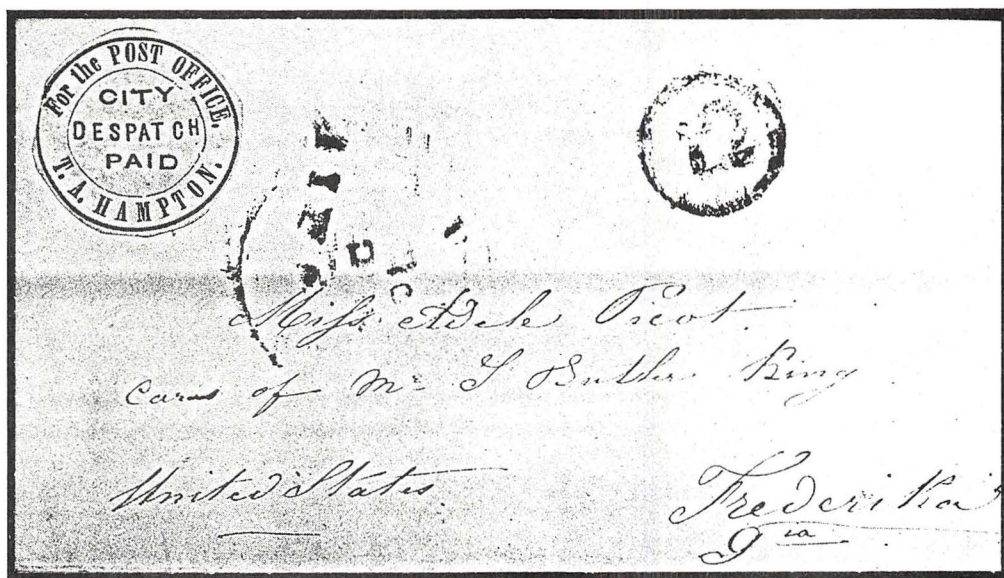 For the POST OFFICE.
CITY
DESPATCH
PAID
T. A. HAMPTON.
Miss Adele Picot.
care of Mr T Butler King
United States.
Frederika
Gia